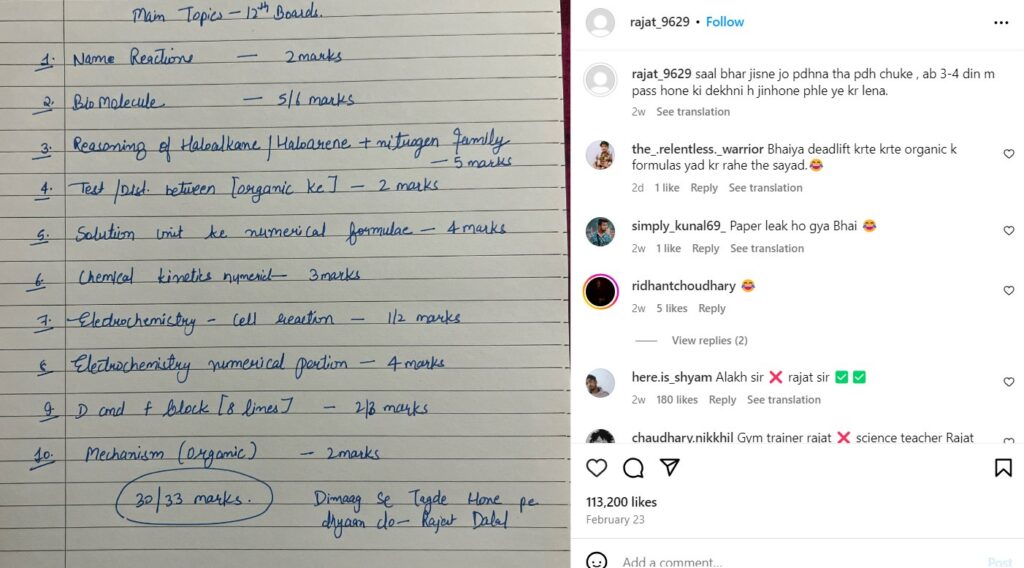 Main Topics - 12th Boards.
1. Name Reactions — 2 marks
2. Bio Molecule — 5/6 marks
3. Reasoning of Haloalkane / Haloarene + nitrogen family
— 5 marks
4. Test / Dist. between [organic ke] — 2 marks
5. Solution unit ke numerical formulae — 4 marks
6. Chemical kinetics numericl — 3 marks
7. Electrochemistry - cell reaction — 1/2 marks
8 Electrochemistry numerical portion — 4 marks
9. D and f block [8 lines] — 2/3 marks
10. Mechanism (Organic) — 2 marks
30/33 marks.
Dimaag Se Tagde Hone pe
dhyaan do - Rajat Dalal
rajat_9629 • Follow
rajat_9629 saal bhar jisne jo pdhna tha pdh chuke , ab 3-4 din m
pass hone ki dekhni h jinhone phle ye kr lena.
2w See translation
the_.relentless._warrior Bhaiya deadlift krte krte organic k
formulas yad kr rahe the sayad.😂
2d 1 like Reply See translation
simply_kunal69_ Paper leak ho gya Bhai 😂
2w 1 like Reply See translation
ridhantchoudhary 😂
2w 5 likes Reply
View replies (2)
here.is_shyam Alakh sir ❌ rajat sir ✅ ✅
2w 180 likes Reply See translation
chaudhary.nikkhil Gym trainer rajat ❌ science teacher Rajat
113,200 likes
February 23
Add a comment...
Post